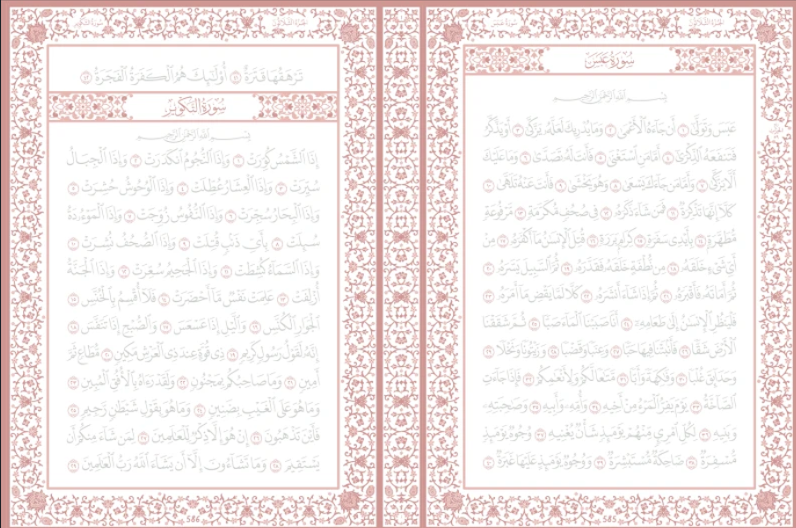 الجزء الثلاثون
سورة عبس
سُورَةُ عَبَسَ
بِسْمِ ٱللَّهِ ٱلرَّحْمَٰنِ ٱلرَّحِيمِ
عَبَسَ وَتَوَلَّىٰٓ ١ أَن جَآءَهُ ٱلْأَعْمَىٰ ٢ وَمَا يُدْرِيكَ لَعَلَّهُۥ يَزَّكَّىٰٓ ٣ أَوْ يَذَّكَّرُ
فَتَنفَعَهُ ٱلذِّكْرَىٰٓ ٤ أَمَّا مَنِ ٱسْتَغْنَىٰ ٥ فَأَنتَ لَهُۥ تَصَدَّىٰ ٦ وَمَا عَلَيْكَ
أَلَّا يَزَّكَّىٰ ٧ وَأَمَّا مَن جَآءَكَ يَسْعَىٰ ٨ وَهُوَ يَخْشَىٰ ٩ فَأَنتَ عَنْهُ تَلَهَّىٰ ١٠
كَلَّآ إِنَّهَا تَذْكِرَةٌ ١١ فَمَن شَآءَ ذَكَرَهُۥ ١٢ فِى صُحُفٍ مُّكَرَّمَةٍ ١٣ مَّرْفُوعَةٍ
مُّطَهَّرَةٍۭ ١٤ بِأَيْدِى سَفَرَةٍ ١٥ كِرَامٍۭ بَرَرَةٍ ١٦ قُتِلَ ٱلْإِنسَٰنُ مَآ أَكْفَرَهُۥ ١٧ مِنْ
أَىِّ شَىْءٍ خَلَقَهُۥ ١٨ مِن نُّطْفَةٍ خَلَقَهُۥ فَقَدَّرَهُۥ ١٩ ثُمَّ ٱلسَّبِيلَ يَسَّرَهُۥ ٢٠
ثُمَّ أَمَاتَهُۥ فَأَقْبَرَهُۥ ٢١ ثُمَّ إِذَا شَآءَ أَنشَرَهُۥ ٢٢ كَلَّا لَمَّا يَقْضِ مَآ أَمَرَهُۥ ٢٣
فَلْيَنظُرِ ٱلْإِنسَٰنُ إِلَىٰ طَعَامِهِۦٓ ٢٤ أَنَّا صَبَبْنَا ٱلْمَآءَ صَبًّا ٢٥ ثُمَّ شَقَقْنَا
ٱلْأَرْضَ شَقًّا ٢٦ فَأَنۢبَتْنَا فِيهَا حَبًّا ٢٧ وَعِنَبًا وَقَضْبًا ٢٨ وَزَيْتُونًا وَنَخْلًا ٢٩
وَحَدَآئِقَ غُلْبًا ٣٠ وَفَٰكِهَةً وَأَبًّا ٣١ مَّتَٰعًا لَّكُمْ وَلِأَنْعَٰمِكُمْ ٣٢ فَإِذَا جَآءَتِ
ٱلصَّآخَّةُ ٣٣ يَوْمَ يَفِرُّ ٱلْمَرْءُ مِنْ أَخِيهِ ٣٤ وَأُمِّهِۦ وَأَبِيهِ ٣٥ وَصَٰحِبَتِهِۦ
وَبَنِيهِ ٣٦ لِكُلِّ ٱمْرِئٍ مِّنْهُمْ يَوْمَئِذٍ شَأْنٌ يُغْنِيهِ ٣٧ وُجُوهٌ يَوْمَئِذٍ
مُّسْفِرَةٌ ٣٨ ضَاحِكَةٌ مُّسْتَبْشِرَةٌ ٣٩ وَوُجُوهٌ يَوْمَئِذٍ عَلَيْهَا غَبَرَةٌ ٤٠
585
الجزء الثلاثون
سورة التكوير
تَرْهَقُهَا قَتَرَةٌ ٤١ أُو۟لَٰٓئِكَ هُمُ ٱلْكَفَرَةُ ٱلْفَجَرَةُ ٤٢
سُورَةُ التَّكْوِيرِ
بِسْمِ ٱللَّهِ ٱلرَّحْمَٰنِ ٱلرَّحِيمِ
إِذَا ٱلشَّمْسُ كُوِّرَتْ ١ وَإِذَا ٱلنُّجُومُ ٱنكَدَرَتْ ٢ وَإِذَا ٱلْجِبَالُ
سُيِّرَتْ ٣ وَإِذَا ٱلْعِشَارُ عُطِّلَتْ ٤ وَإِذَا ٱلْوُحُوشُ حُشِرَتْ ٥
وَإِذَا ٱلْبِحَارُ سُجِّرَتْ ٦ وَإِذَا ٱلنُّفُوسُ زُوِّجَتْ ٧ وَإِذَا ٱلْمَوْءُۥدَةُ
سُئِلَتْ ٨ بِأَىِّ ذَنۢبٍ قُتِلَتْ ٩ وَإِذَا ٱلصُّحُفُ نُشِرَتْ ١٠
وَإِذَا ٱلسَّمَآءُ كُشِطَتْ ١١ وَإِذَا ٱلْجَحِيمُ سُعِّرَتْ ١٢ وَإِذَا ٱلْجَنَّةُ
أُزْلِفَتْ ١٣ عَلِمَتْ نَفْسٌ مَّآ أَحْضَرَتْ ١٤ فَلَآ أُقْسِمُ بِٱلْخُنَّسِ ١٥
ٱلْجَوَارِ ٱلْكُنَّسِ ١٦ وَٱلَّيْلِ إِذَا عَسْعَسَ ١٧ وَٱلصُّبْحِ إِذَا تَنَفَّسَ ١٨
إِنَّهُۥ لَقَوْلُ رَسُولٍ كَرِيمٍ ١٩ ذِى قُوَّةٍ عِندَ ذِى ٱلْعَرْشِ مَكِينٍ ٢٠ مُّطَاعٍ ثَمَّ
أَمِينٍ ٢١ وَمَا صَاحِبُكُم بِمَجْنُونٍ ٢٢ وَلَقَدْ رَءَاهُ بِٱلْأُفُقِ ٱلْمُبِينِ ٢٣
وَمَا هُوَ عَلَى ٱلْغَيْبِ بِضَنِينٍ ٢٤ وَمَا هُوَ بِقَوْلِ شَيْطَٰنٍ رَّجِيمٍ ٢٥
فَأَيْنَ تَذْهَبُونَ ٢٦ إِنْ هُوَ إِلَّا ذِكْرٌ لِّلْعَٰلَمِينَ ٢٧ لِمَن شَآءَ مِنكُمْ أَن
يَسْتَقِيمَ ٢٨ وَمَا تَشَآءُونَ إِلَّآ أَن يَشَآءَ ٱللَّهُ رَبُّ ٱلْعَٰلَمِينَ ٢٩
586